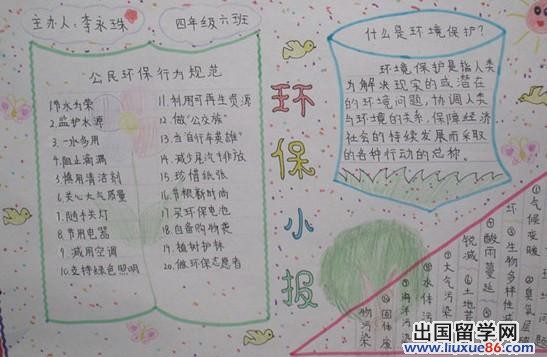 主办人:李永珠
四年级六班
公民环保行为规范
1.节水为荣
2.监护水源
3.一水多用
4.阻止滴漏
5.慎用清洁剂
6.关心大气质量
7.随手关灯
8.节用电器
9.减用空调
10.支持绿色照明
11.利用可再生资源
12.做"公交族"
13.当"自行车英雄"
14.减少尾汽排放
15.珍惜纸张
16.节粮新时尚
17.买环保电池
18.自备购物袋
19.植树护林
20.做环保志愿者
环保小报
什么是环境保护?
环境保护是指人类
为解决现实的或潜在
的环境问题,协调人类
与环境的关系,保障经济
社会的持续发展而采取
的各种行动的总称。
①气候变暖
②臭氧层破
③生物多样性减
④酸雨蔓延
锐减
⑥土地荒
⑦大气污染
⑧水体污
⑨海洋污
⑩固体废
物污染
出国留学网
www.liuxue86.com